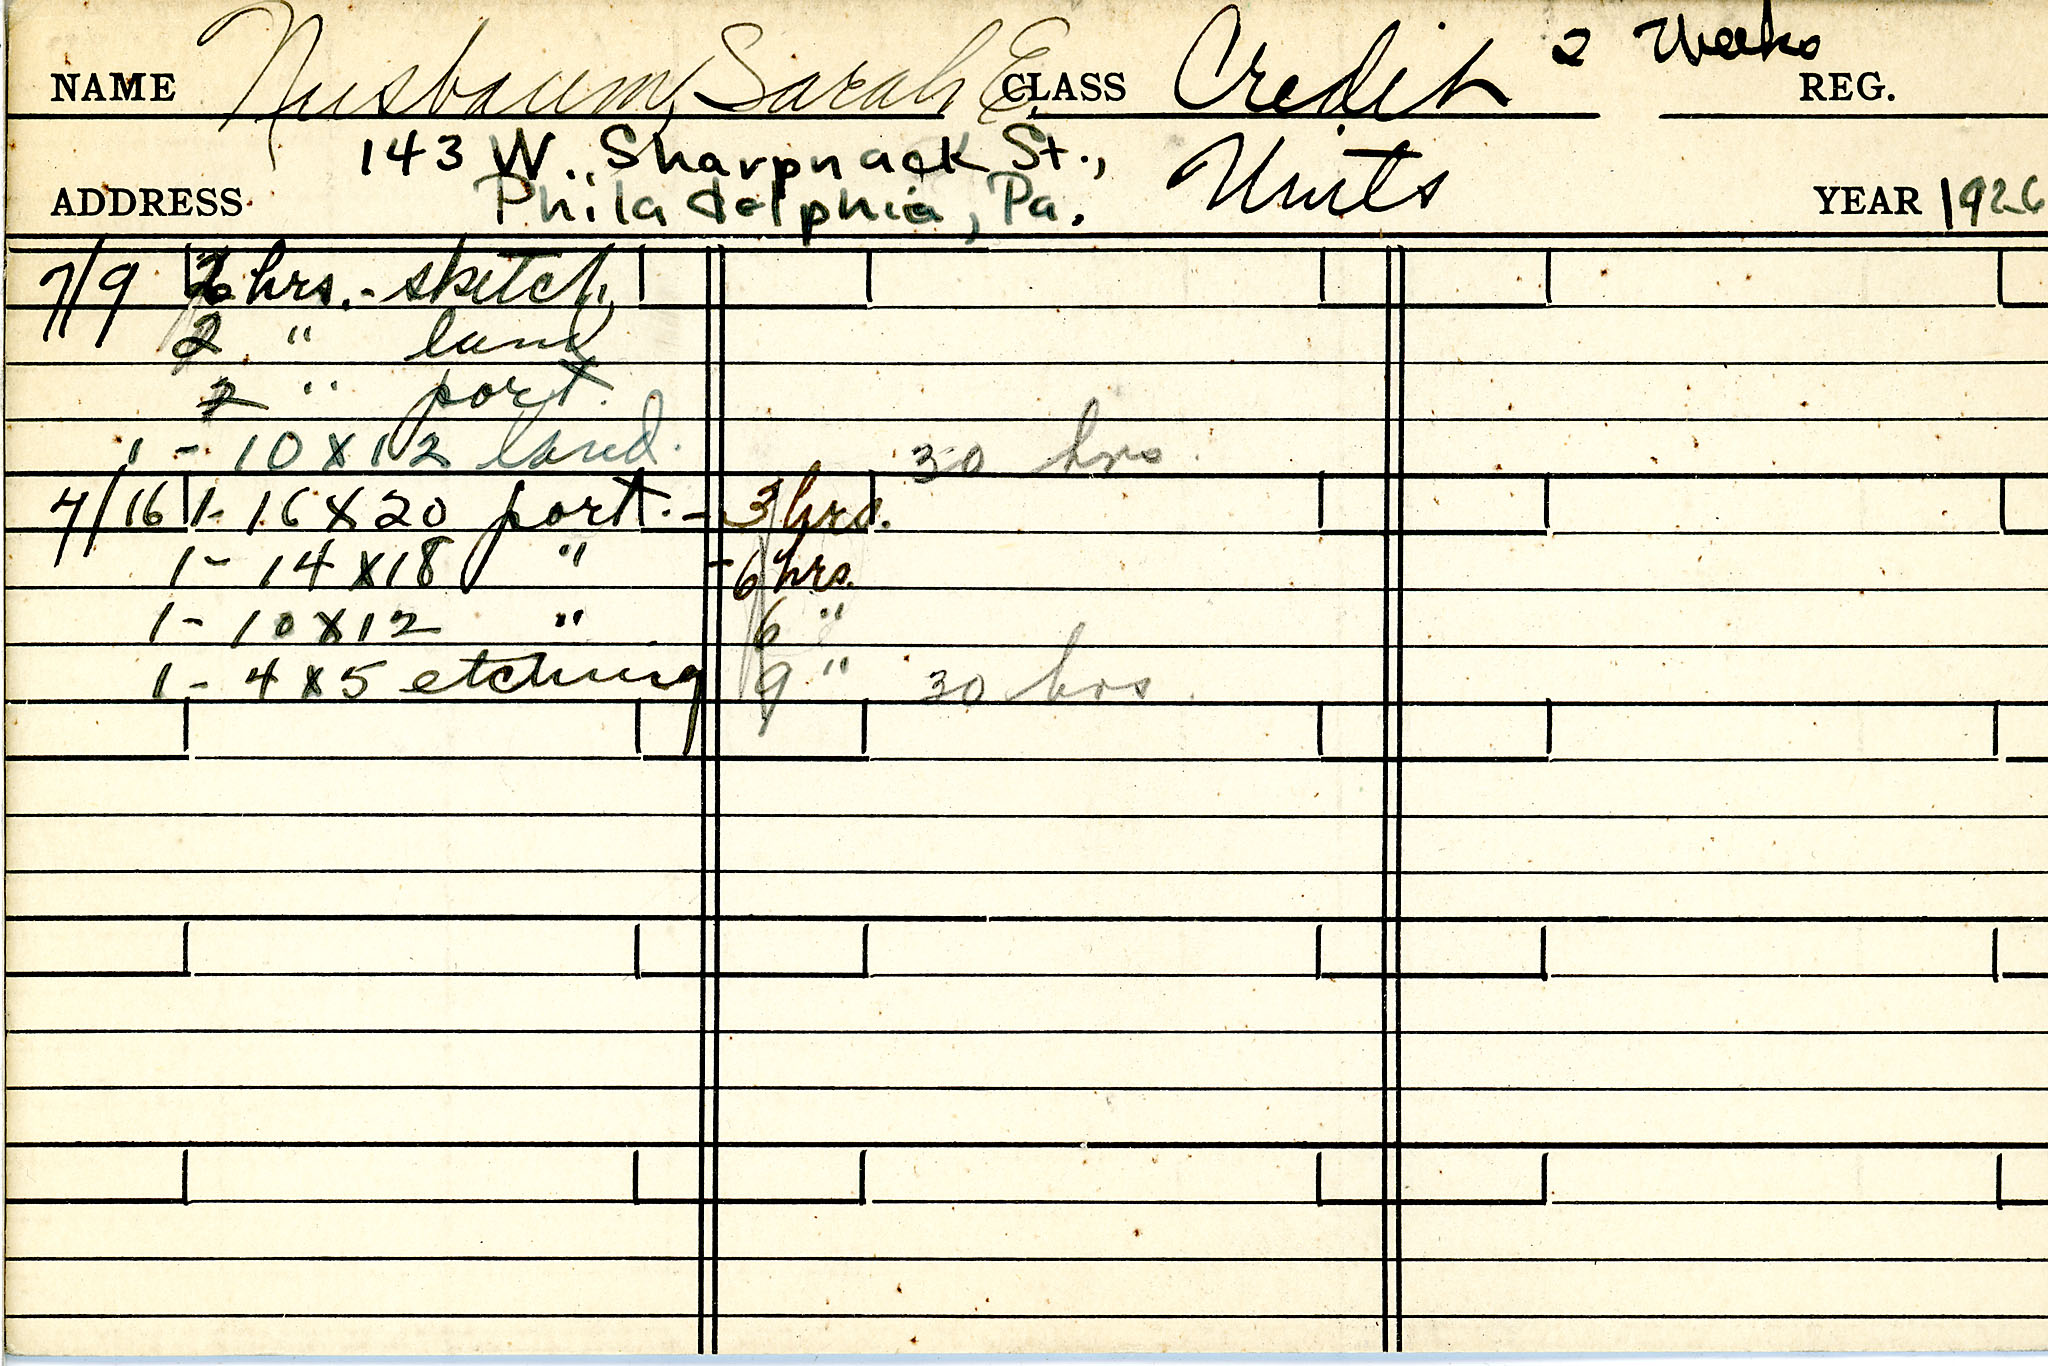 NAME Nusbaum, Sarah E. CLASS Credit 2 Weeks REG.
143 W. Sharpnack St., Units
ADDRESS Philadelphia, Pa. YEAR 1926
7/9 hrs. - sketch
2 " land
2 " port.
1 - 10 X 12 land. 30 hrs.
7/16 1 - 16 X 20 port. - 3 hrs.
1 - 14 X 18 " - 6 hrs.
1 - 10 X 12 " 6 "
1 - 4 X 5 etching 9 " 30 hrs.